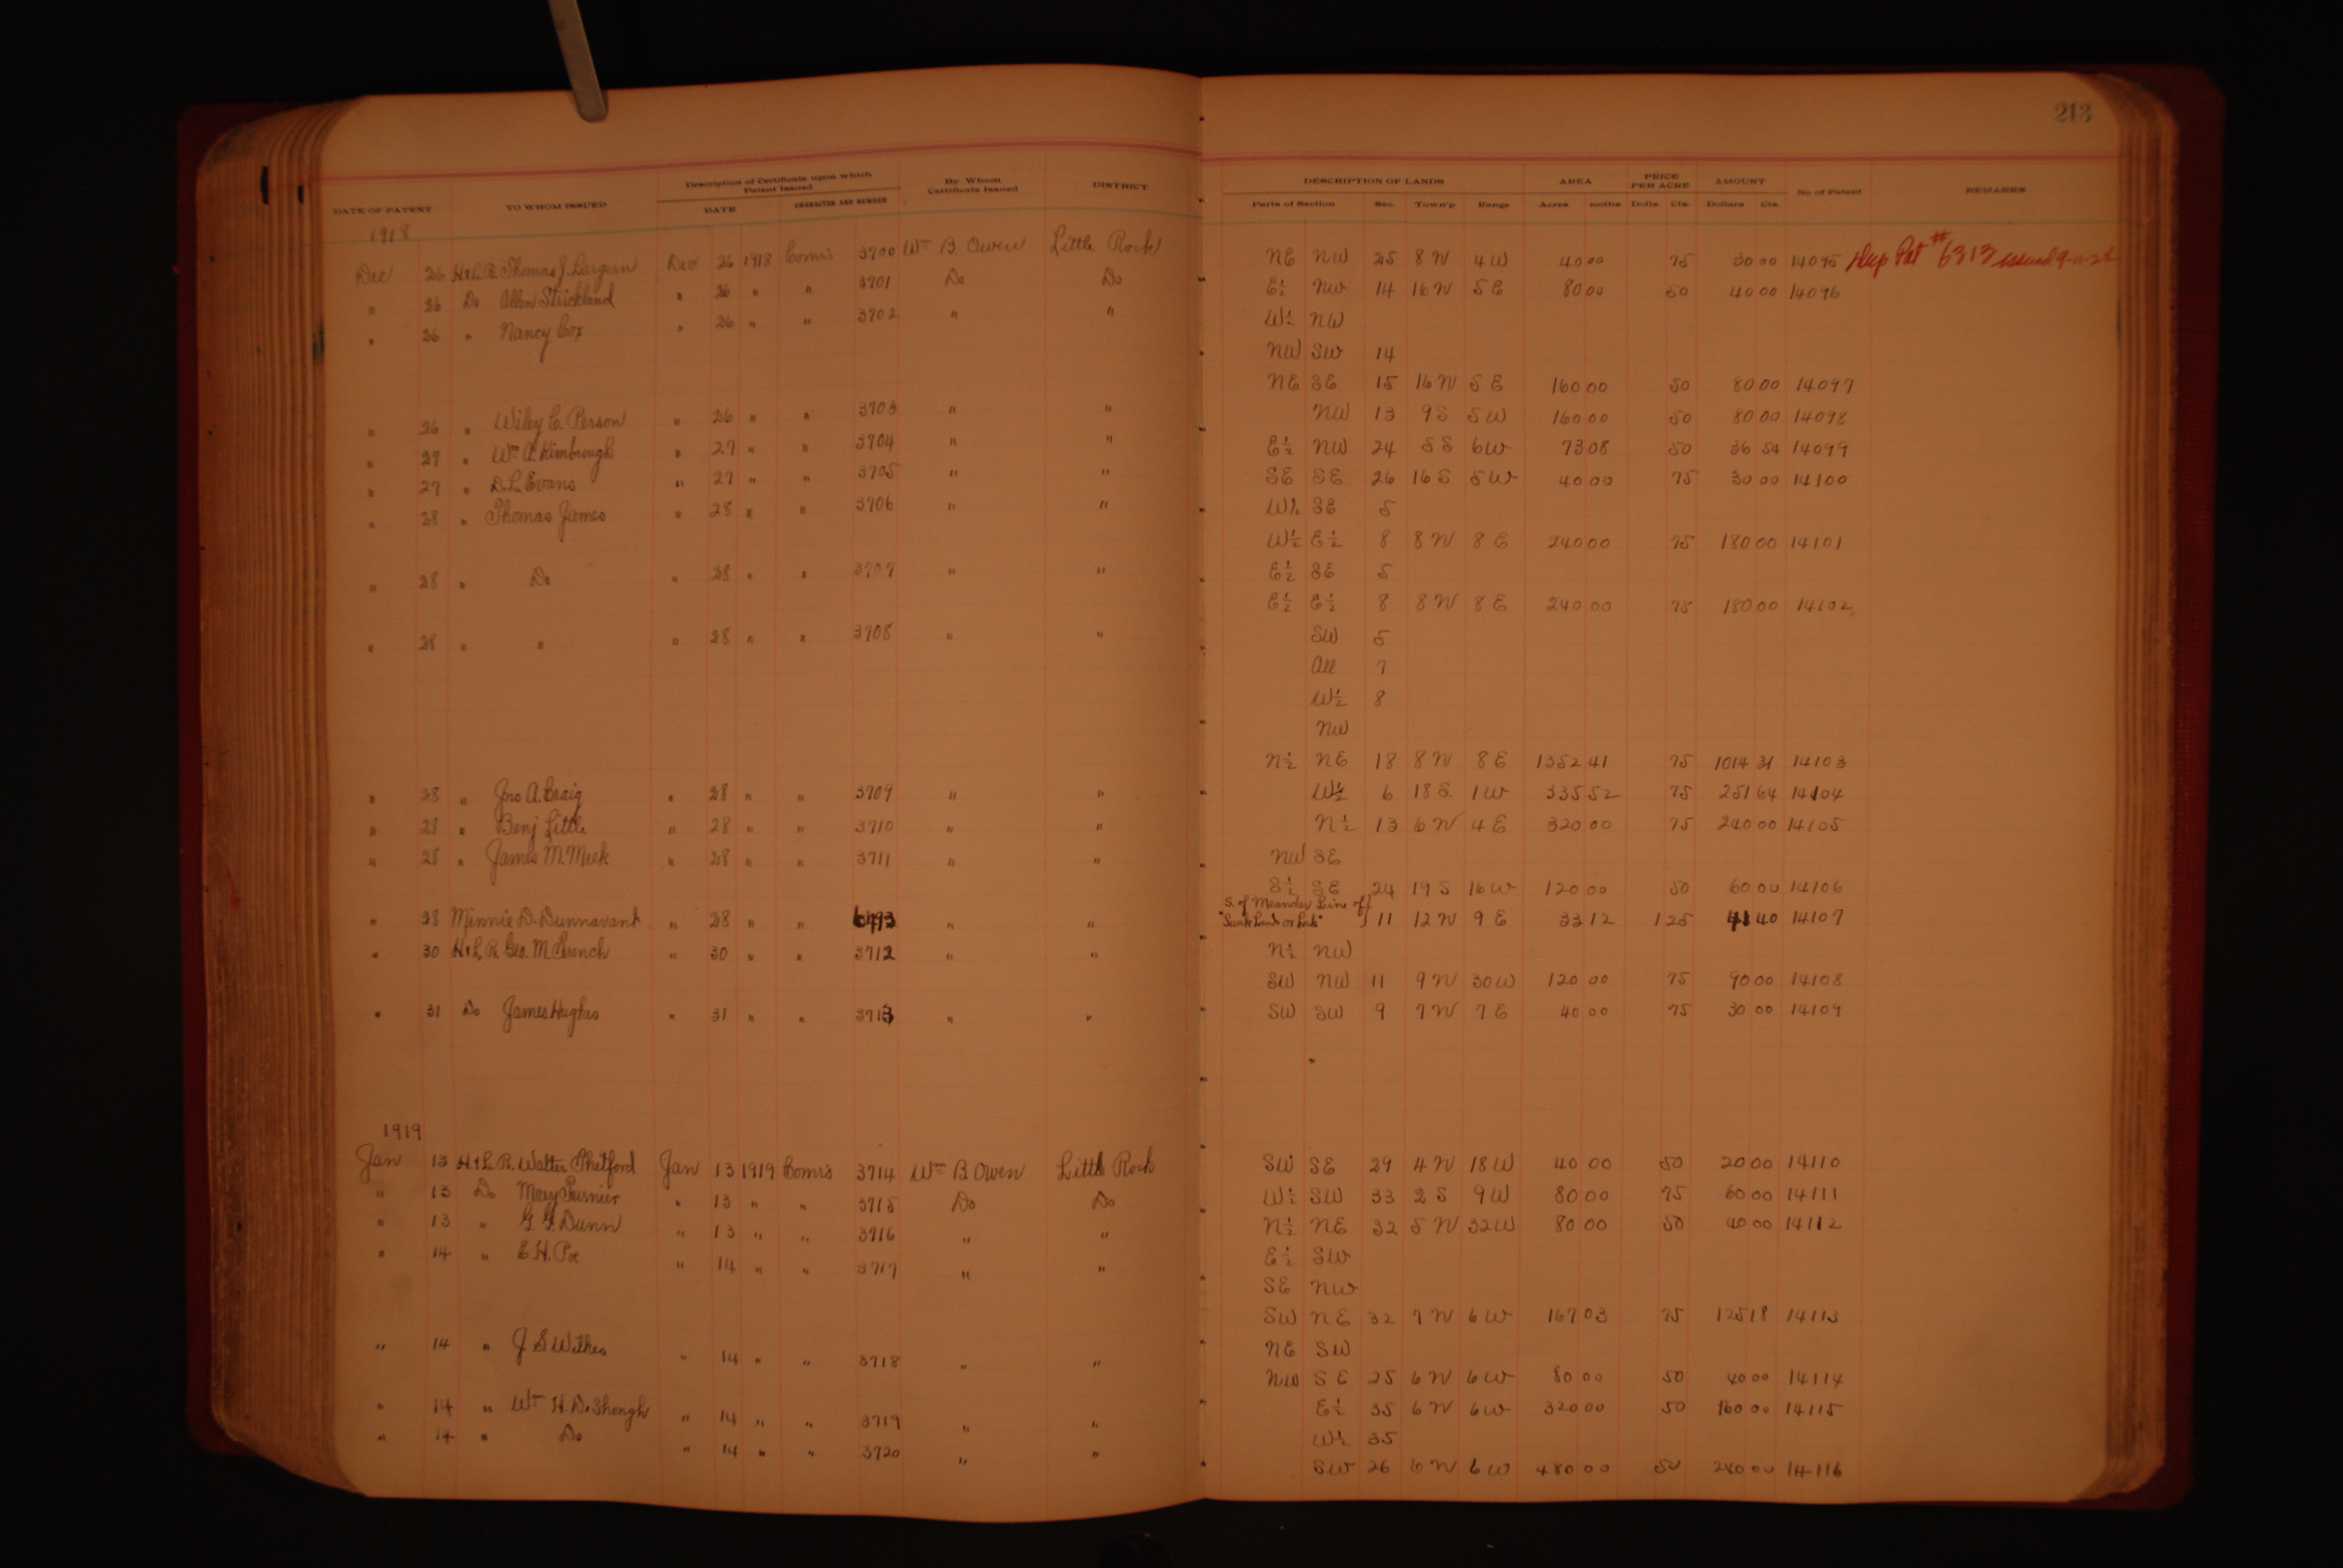 213
DATE OF PATENT TO WHOM ISSUED Description of Certificate upon which Patent Issued DATE CHARACTER AND NUMBER By Whom Certificate Issued DISTRICT DESCRIPTION OF LANDS Parts of Section Sec. Town'p Range AREA Acres PRICE PER ACRE Dolls. Cts. AMOUNT Dollars Cts. No of Patent REMARKS
1918
Dec 26 H&L.R. Thomas J. Dec 26 1918 Com'rs 3700 Wm B. Owen Little Rock NE NW 25 8 N 4 W 40 00 75 30 00 14095 Dup Pat # 6313 issued
" 26 Do Allen Strickland " 26 " " 3701 Do Do E½ NW 14 16 N 5 E 80 00 50 40 00 14096
" 26 " Nancy Cox " 26 " " 3702 " " W½ NW
NW SW 14
NE SE 15 16 N 5 E 160 00 50 80 00 14097
" 26 " Wiley C. Person " 26 " " 3703 " " NW 13 9 S 5 W 160 00 50 80 00 14098
" 27 " Wm A. Kimbrough " 27 " " 3704 " " E½ NW 24 5 S 6 W 73 08 50 36 54 14099
" 27 " D.L. Evans " 27 " " 3705 " " SE SE 26 16 S 5 W 40 00 75 30 00 14100
" 28 " Thomas James " 28 " " 3706 " " W½ SE 5
W½ E½ 8 8 N 8 E 240 00 75 180 00 14101
" 28 " Do " 28 " " 3707 " " E½ SE 5
E½ E½ 8 8 N 8 E 240 00 75 180 00 14102
" 28 " " " 28 " " 3708 " " SW 5
All 7
W½ 8
NW
N½ NE 18 8 N 8 E 1352 41 75 1014 31 14103
" 28 " Jno A. Craig " 28 " " 3709 " " W½ 6 18 S. 1 W 335 52 75 251 64 14104
" 28 " Benj Little " 28 " " 3710 " " N½ 13 6 N 4 E 320 00 75 240 00 14105
" 28 " James M. Meek " 28 " " 3711 " " NW SE
S½ SE 24 19 S 16 W 120 00 50 60 00 14106
S. of Meander Line of
" 28 Minnie D. Dunnavant " 28 " " 6493 " " "Sunk Lands or Lake" 11 12 N 9 E 33 12 1 25 41 40 14107
" 30 H&L R. Geo. M. French " 30 " " 3712 " " N½ NW
SW NW 11 9 N 30 W 120 00 75 90 00 14108
" 31 Do James Hughes " 31 " " 3713 " " SW SW 9 7 N 7 E 40 00 75 30 00 14109
1919
Jan 13 H&L R. Walter Shelford Jan 13 1919 Com'rs 3714 Wm B Owen Little Rock SW SE 29 4 N 18 W 40 00 50 20 00 14110
" 13 Do Mary " 13 " " 3715 Do Do W½ SW 33 2 S 9 W 80 00 75 60 00 14111
" 13 " G. G. Dunn " 13 " " 3716 " " N½ NE 32 5 N 32 W 80 00 50 40 00 14112
" 14 " E. H. Poe " 14 " " 3717 " " E½ SW
SE NW
SW NE 32 7 N 6 W 167 03 75 125 18 14113
" 14 " J S Wilkes " 14 " " 3718 " " NE SW
NW SE 25 6 N 6 W 80 00 50 40 00 14114
" 14 " Wm H. DeShongh " 14 " " 3719 " " E½ 35 6 N 6 W 320 00 50 160 00 14115
" 14 " Do " 14 " " 3720 " " W½ 35
SW 26 6 N 6 W 480 00 50 240 00 14116